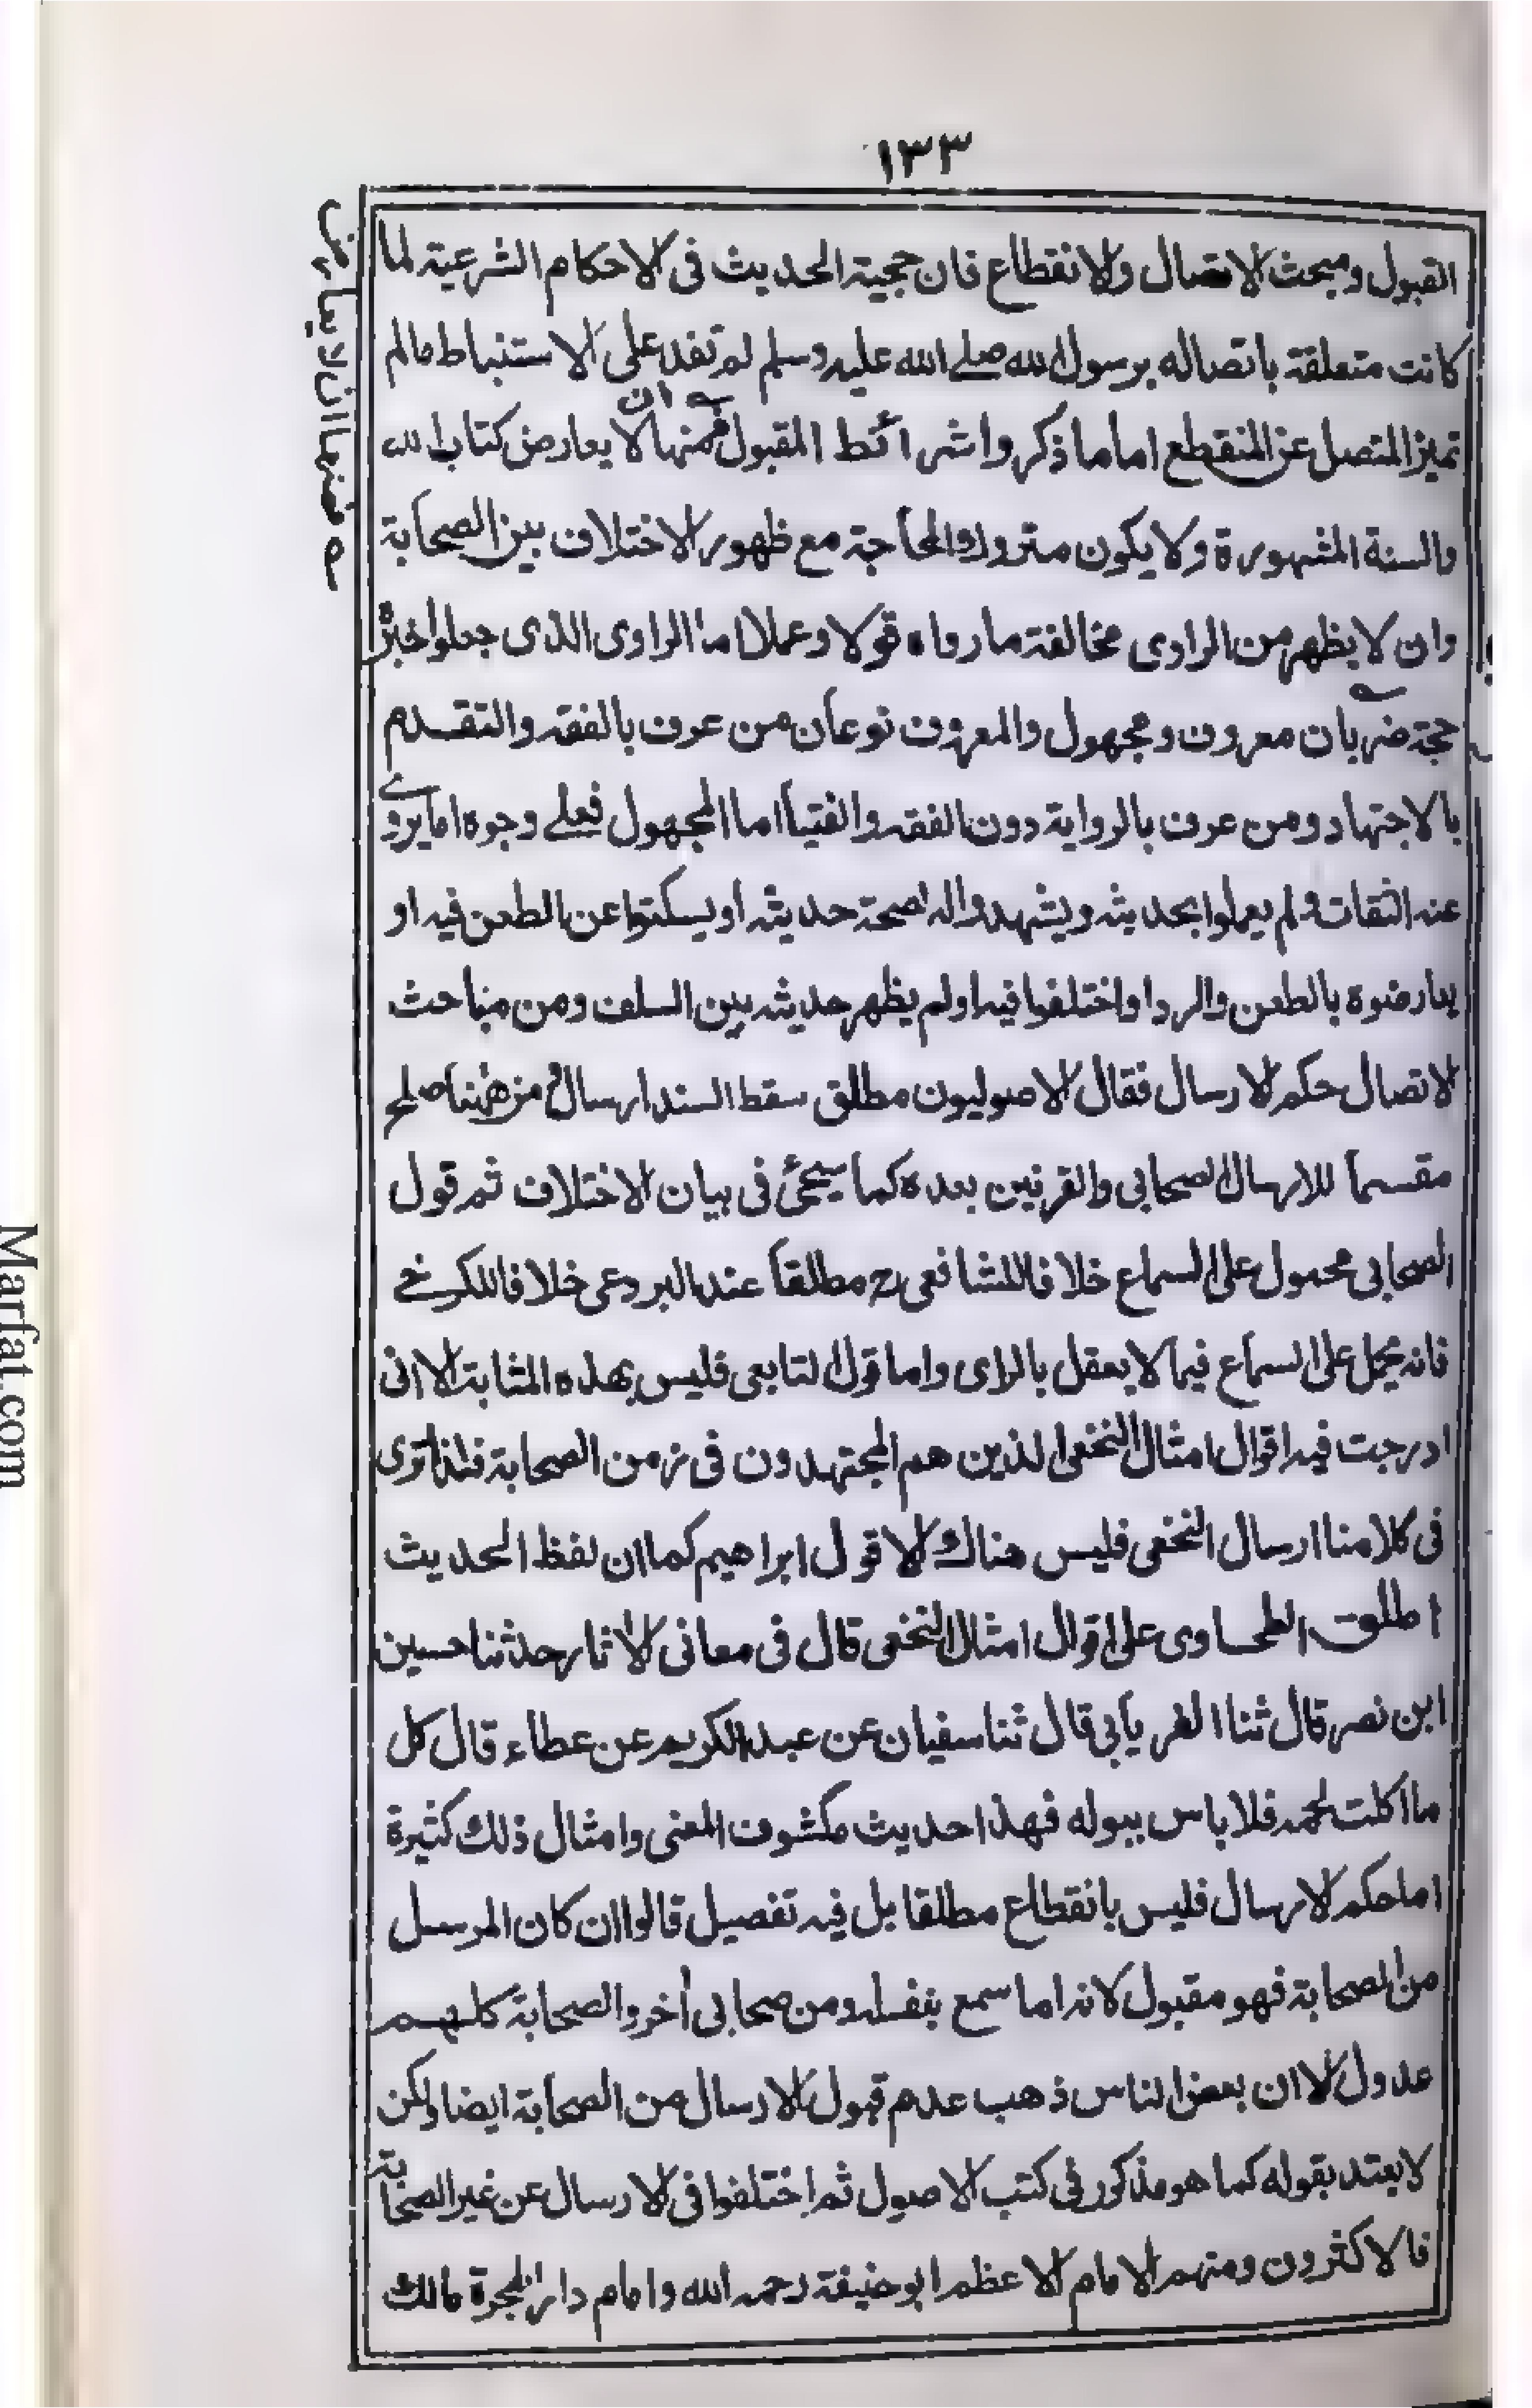 ١٣٣
القبول ومبحث الاتصال والانقطاع فان حجية الحديث فى الاحكام الشرعية لما
كانت متعلقة باتصاله برسول الله صلے الله عليه وسلم لم تفد على الاستنباط مالم
تميز المتصل عن المنقطع اما ما ذكروا شرائط المقبول فمنها ان لا يعارض كتاب الله
والسنة المشهورة ولا يكون متروك المحاجة مع ظهور الاختلاف بين الصحابة
وان لا يظهر من الراوى مخالفة ما رواه قولا وعملا اما الراوى الذى جعلوا خبره
حجة ضربان معروف ومجهول والمعروف نوعان من عرف بالفقه والتقدم
بالاجتهاد ومن عرف بالرواية دون الفقه والفتيا اما المجهول فعلے وجوه اما يروے
عنه الثقات ولم يعملوا بحديثه ويشهدوا له لصحة حديثه او يسكتوا عن الطعن فيه او
يعارضوه بالطعن والرد او اختلفوا فيه او لم يظهر حديثه بين السلف ومن مباحث
الاتصال حكم الارسال فقال الاصوليون مطلق سقط السند ارسال ومن ههنا صلح
مقسما للارسال الصحابى والقرنين بعده كما سيجئ فى بيان الاختلاف ثم قول
الصحابى محمول على السماع خلافا للشافعى رح مطلقاً عند البردعى خلافا للكرخے
فانه يحمل على السماع فيما لا يعقل بالراى واما قول التابعى فليس بهذه المثابة الا انى
ادرجت فيه اقوال امثال النخعى الذين هم المجتهدون فى زمن الصحابة فلذا ترى
فى كلامنا ارسال النخعى فليس هناك الا قول ابراهيم كما ان لفظ الحديث
اطلق الطحاوى على اقوال امثال النخعى قال فى معانى الاثار حدثنا حسين
ابن نصر قال ثنا الفريابى قال ثنا سفيان عن عبد الكريم عن عطاء قال كل
ما اكلت لحمه فلا باس ببوله فهذا حديث مكشوف المعنى وامثال ذلك كثيرة
اما حكم الارسال فليس بانقطاع مطلقا بل فيه تفصيل قالوا ان كان المرسل
من الصحابة فهو مقبول لانه اما سمع بنفسه او من صحابى أخر والصحابة كلهم
عدول الا ان بعض الناس ذهب عدم قبول الارسال من الصحابة ايضا ولكن
لا يعتد بقوله كما هو مذكور فى كتب الاصول ثم اختلفوا فى الارسال عن غير الصحابة
فالاكثرون ومنهم الامام الاعظم ابو حنيفة رحمه الله وامام دار الهجرة مالك
فمنها ان لا يعارض
Marfat.com